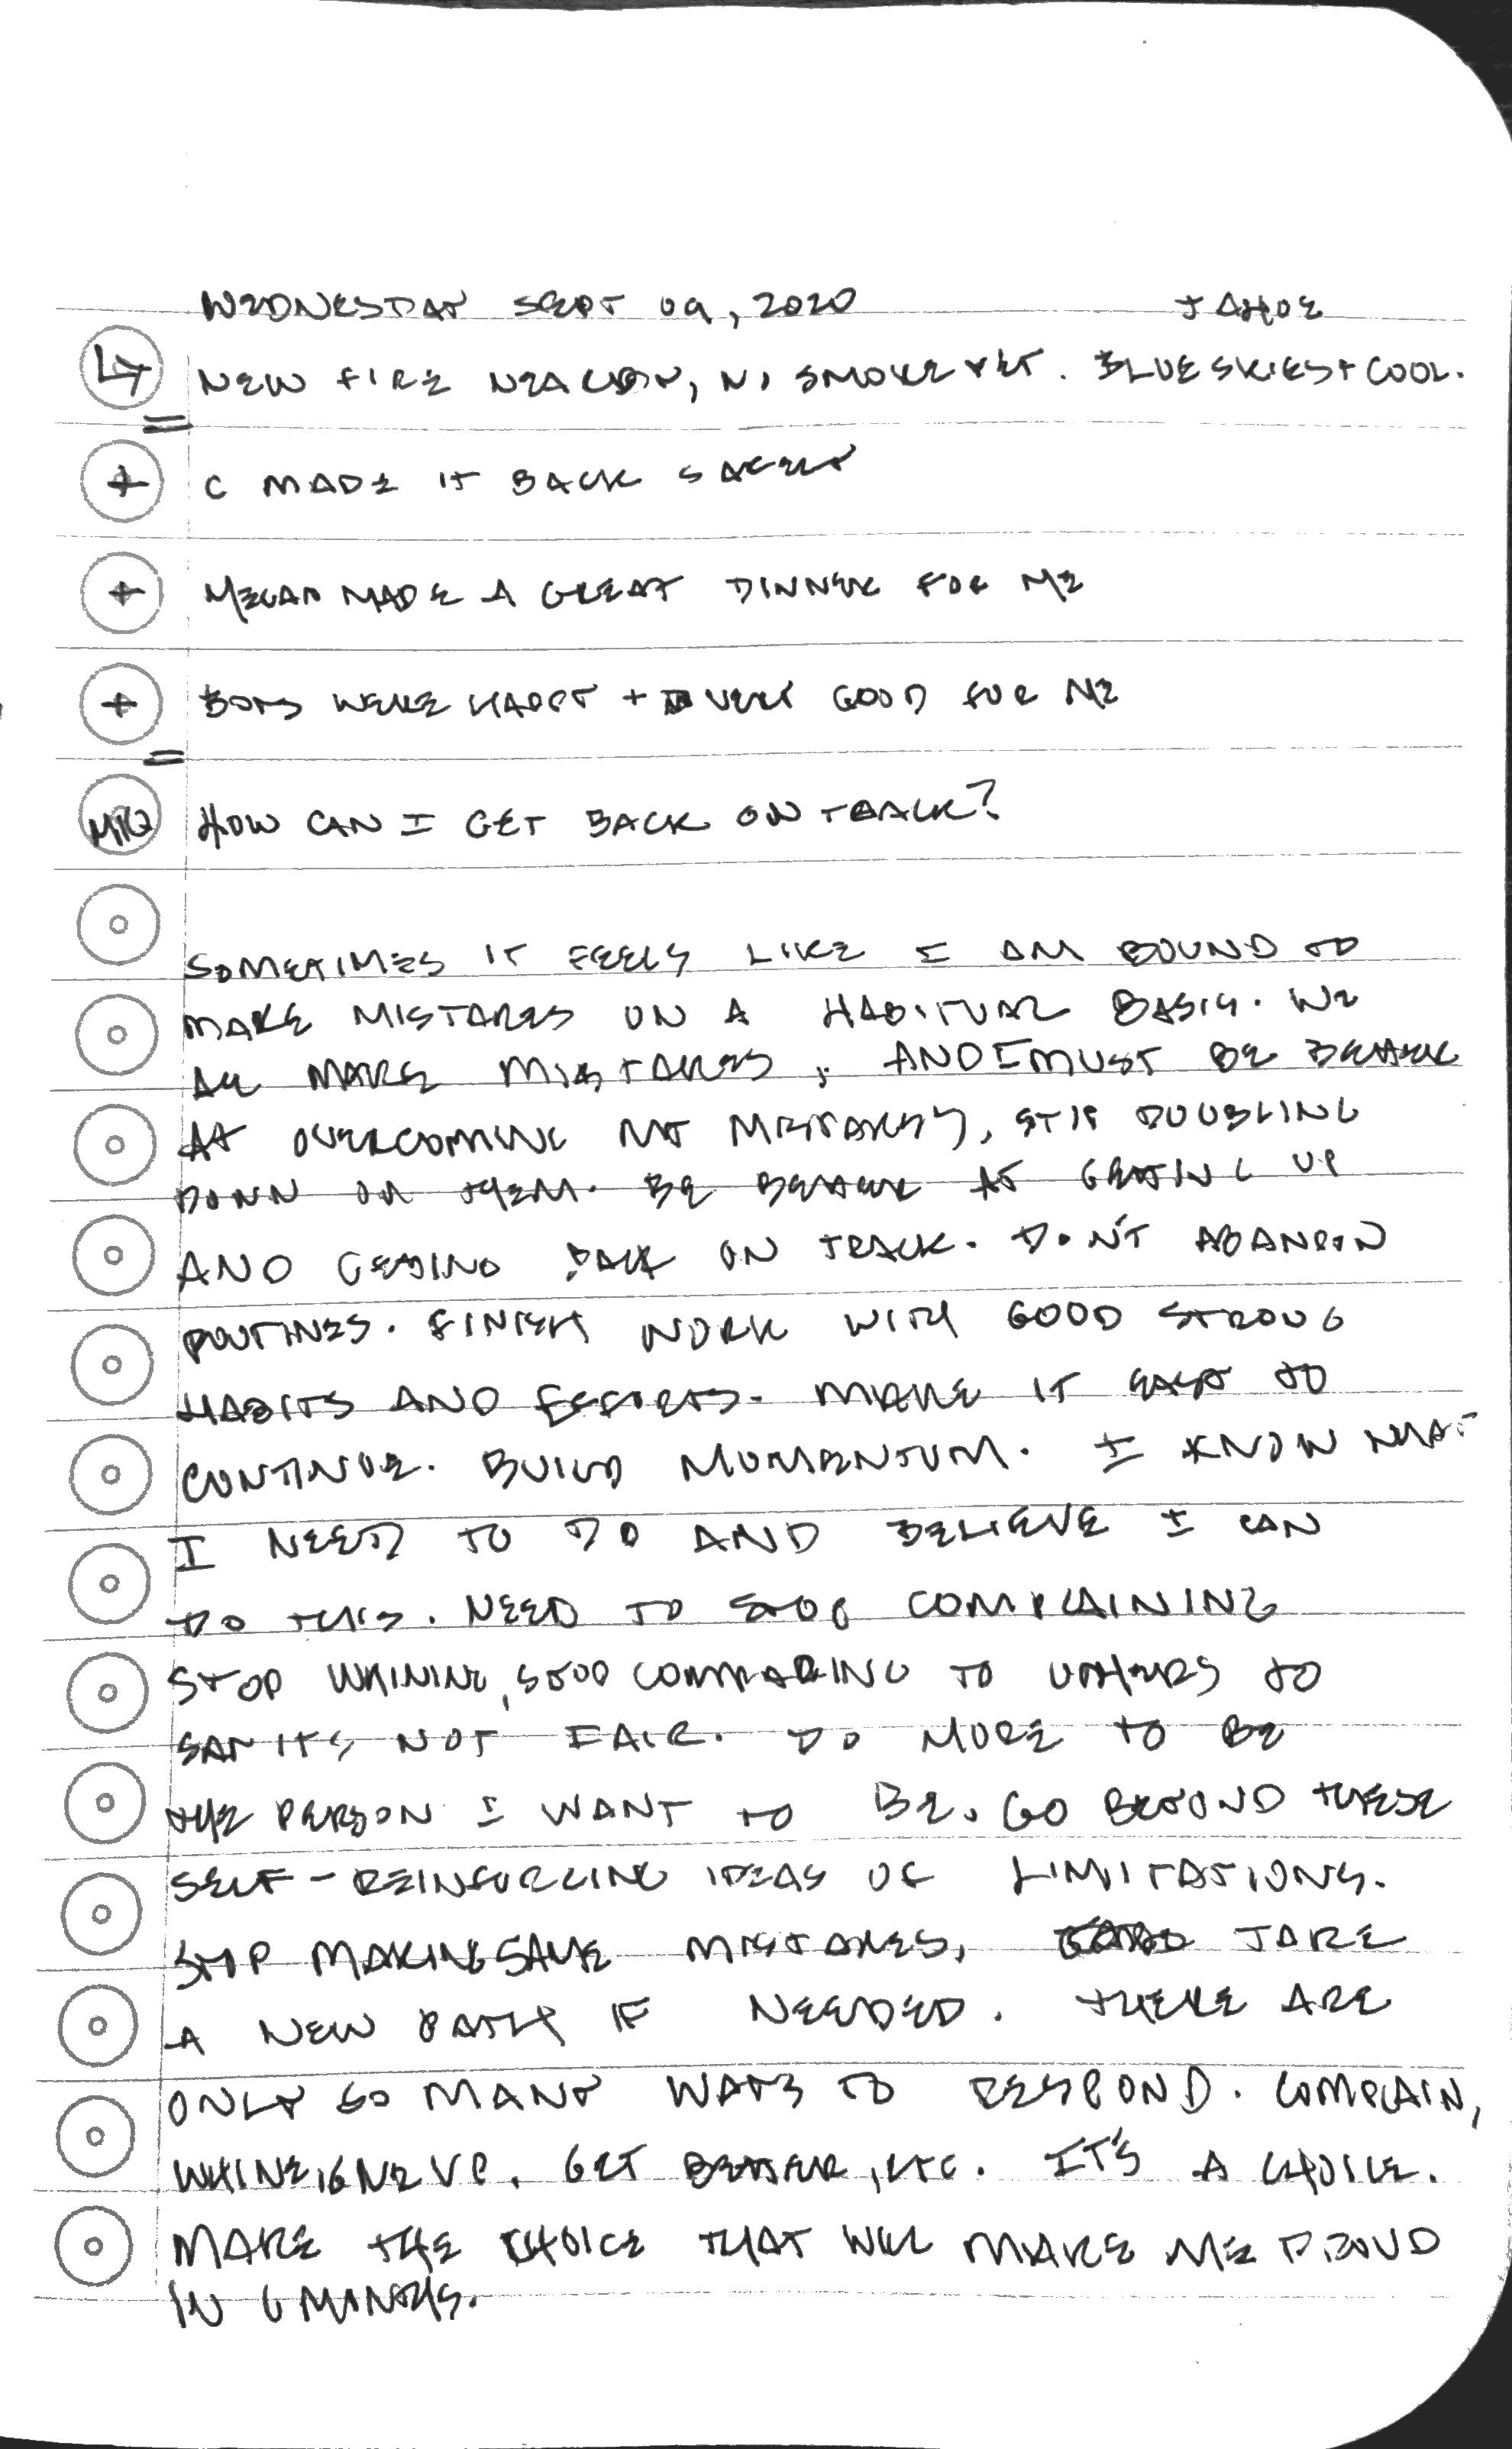 WEDNESDAY SEPT 09, 2020 TAHOE
L7 NEW FIRE NEARBY, NO SMOKE YET. BLUE SKIES + COOL.
+ C MADE IT BACK SAFELY
+ MEGAN MADE A GREAT DINNER FOR ME
+ BOYS WERE HAPPY + VERY GOOD FOR ME
MIQ HOW CAN I GET BACK ON TRACK?
SOMETIMES IT FEELS LIKE I AM BOUND TO
MAKE MISTAKES ON A HABITUAL BASIS. WE
ALL MAKE MISTAKES, AND I MUST BE BETTER
AT OVERCOMING MY MISTAKES, STOP DOUBLING
DOWN ON THEM. BE BETTER AT GETTING UP
AND GETTING BACK ON TRACK. DON'T ABANDON
ROUTINES. FINISH WORK WITH GOOD STRONG
HABITS AND EFFORTS. MAKE IT EASY TO
CONTINUE. BUILD MOMENTUM. I KNOW WHAT
I NEED TO DO AND BELIEVE I CAN
DO THIS. NEED TO STOP COMPLAINING
STOP WHINING, STOP COMPARING TO OTHERS TO
SAY ITS NOT FAIR. DO MORE TO BE
THE PERSON I WANT TO BE. GO BEYOND THESE
SELF-REINFORCING IDEAS OF LIMITATIONS.
STOP MAKING SAME MISTAKES, TAKE
A NEW PATH IF NEEDED. THERE ARE
ONLY SO MANY WAYS TO RESPOND. COMPLAIN,
WHINE, GIVE UP, GET BETTER, ETC. IT'S A CHOICE.
MAKE THE CHOICE THAT WILL MAKE ME PROUD
IN 6 MONTHS.